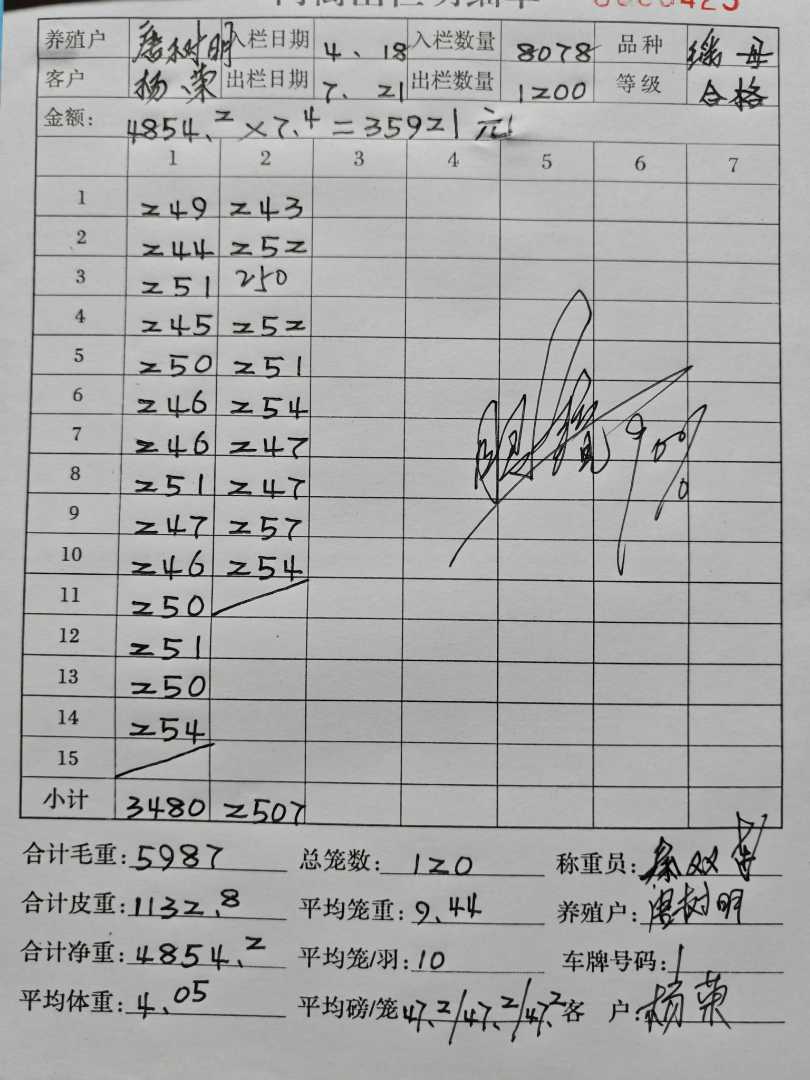 养殖户 唐树明 入栏日期 4、18 入栏数量 8078 品种
客户 杨荣 出栏日期 7、21 出栏数量 1200 等级 合格
金额: 4854.2×7.4=35921元
1 2 3 4 5 6 7
1 249 243
2 244 252
3 251 250
4 245 252
5 250 251
6 246 254
7 246 247
8 251 247
9 247 257
10 246 254
11 250
12 251
13 250
14 254
15
小计 3480 2507
90%
合计毛重: 5987 总笼数: 120 称重员:
合计皮重: 1132.8 平均笼重: 9.44 养殖户: 唐树明
合计净重: 4854.2 平均笼/羽: 10 车牌号码: 1
平均体重: 4.05 平均磅/笼 47.2/47.2/47.2 客 户: 杨荣